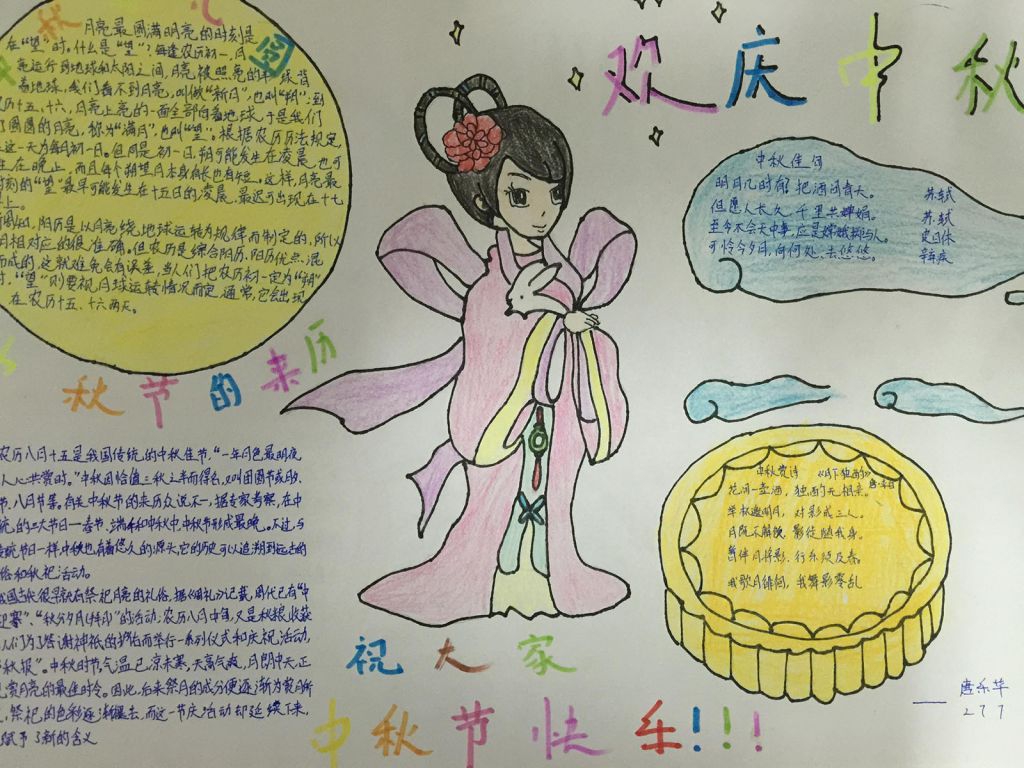 秋
心
圆
月亮最圆满明亮的时刻是
在"望"时。什么是"望"?每逢农历初一,月
亮运行到地球和太阳之间,月亮被照亮的半球背
着地球,我们看不到月亮,叫做"新月",也叫"朔";到
历十五、十六,月亮上亮的一面全部向着地球,于是我们
了圆圆的月亮,称为"满月",也叫"望"。根据农历历法规定,
这一天为每月初一日。但同是初一日,朔可能发生在凌晨,也可
生在晚上,而且每个朔望月本身有长也有短。这样,月亮最
时刻的"望"最早可能发生在十五日的凌晨,最迟可出现在十七
上。
周知,阴历是以月亮绕地球运转为规律而制定的,所以
月相对应的很准确。但农历是综合阴历、阳历优点,混
而成的,这就难免会有误差,当人们把农历初一定为"朔"
时,"望"则要视月球运转情况而定,通常,它会出现
在农历十五、十六两天。
欢庆中秋
中秋佳句
明月几时有,把酒问青天。 苏轼
但愿人长久,千里共婵娟。 苏轼
可怜今夕月,向何处、去悠悠。 辛弃疾
秋节的来历
农历八月十五是我国传统的中秋佳节,"一年月色最明夜
人心共赏时。"中秋因恰值三秋之半而得名,又叫团圆节或
节、八月节等,有关中秋节的来历众说不一,据专家考察,在中
统的三大节日—春节、端午和中秋中,中秋节形成最晚。不过,与
统节日一样,中秋也有着悠久的源头,它的历史可以追朔到远古的
俗和秋祀活动。
我国古代很早就有祭祀月亮的礼俗,据《周礼》记载,周代已有"中
迎寒"、"秋分夕月(拜月)"的活动;农历八月中旬,又是秋粮收获
人们为了答谢神祇的护佑而举行一系列仪式和庆祝活动,
"秋报"。中秋时节,气温已凉未寒,天高气爽,月朗中天,正
观赏月亮的最佳时令。因此,后来祭月的成分便逐渐为赏月所
,祭祀的色彩逐渐褪去,而这一节庆活动却延续下来,
赋予了新的含义
中秋赏诗 《月下独酌》
唐·李白
花间一壶酒,独酌无相亲。
举杯邀明月,对影成三人。
月既不解饮,影徒随我身。
暂伴月将影,行乐须及春。
我歌月徘徊,我舞影零乱
祝大家
中秋节快乐!!!!
——唐乐华
277